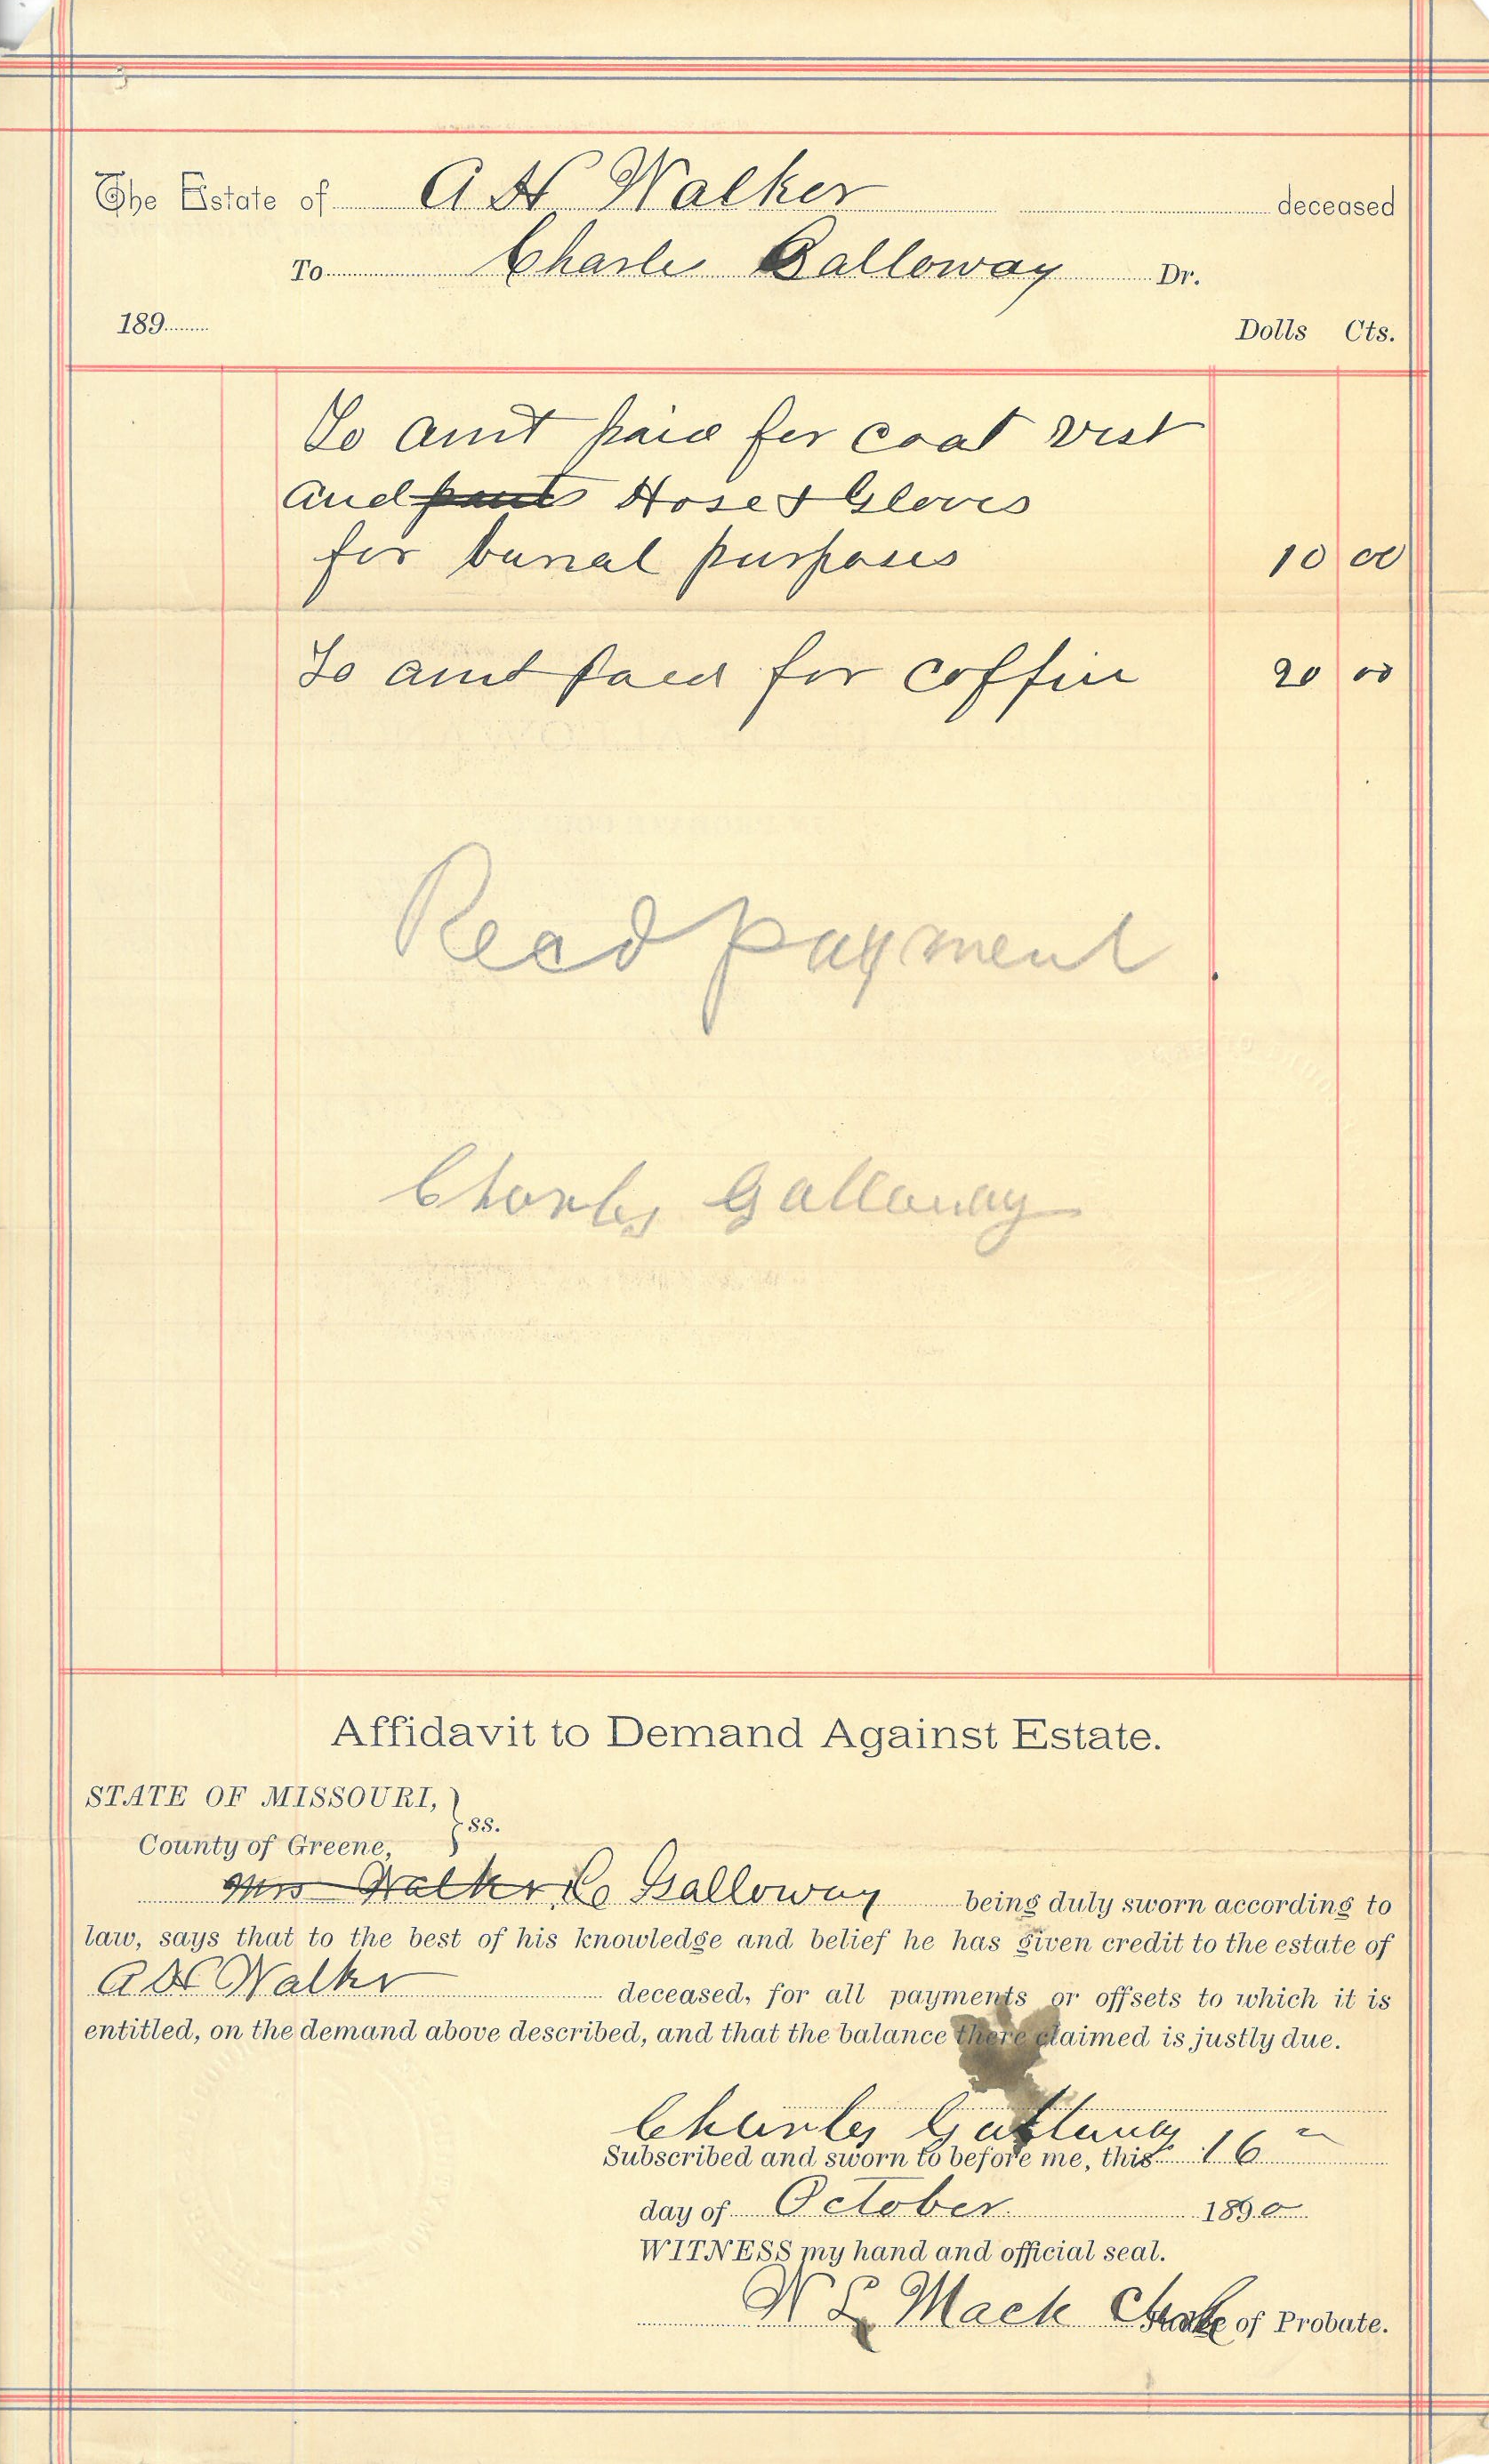 The Estate of A H Walker deceased
To Charles Galloway Dr.
189 Dolls Cts.
To amt paid for coat vest
and pants Hose & Gloves
for burial purposes 10 00
To amt paid for coffin 20 00
Recd payment
Charles Galloway
Affidavit to Demand Against Estate.
STATE OF MISSOURI, } ss.
County of Greene,
Mrs Walker C Galloway being duly sworn according to
law, says that to the best of his knowledge and belief he has given credit to the estate of
A H Walker deceased, for all payments or offsets to which it is
entitled, on the demand above described, and that the balance there claimed is justly due.
Charles Galloway
Subscribed and sworn to before me, this 16
day of October 1890
WITNESS my hand and official seal.
W L Mack Clerk Judge of Probate.